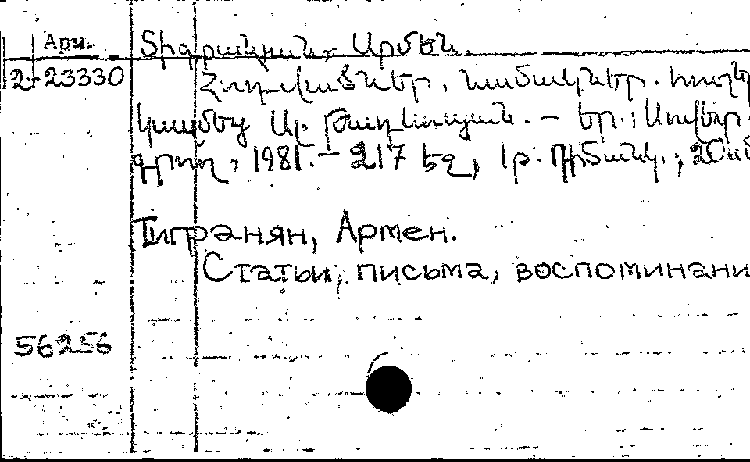 Арм.
Տիգրանյան, Արմեն.
2-23330
Հոդվածներ, նամակներ, հուշեր
Կազմեց Ա. Թադևոսյան. – Եր., Սովետ.
գրող, 1981. – 217 էջ, 1 թ. դիմանկ., 20սմ
Тигранян, Армен.
Статьи, письма, воспоминани
56256